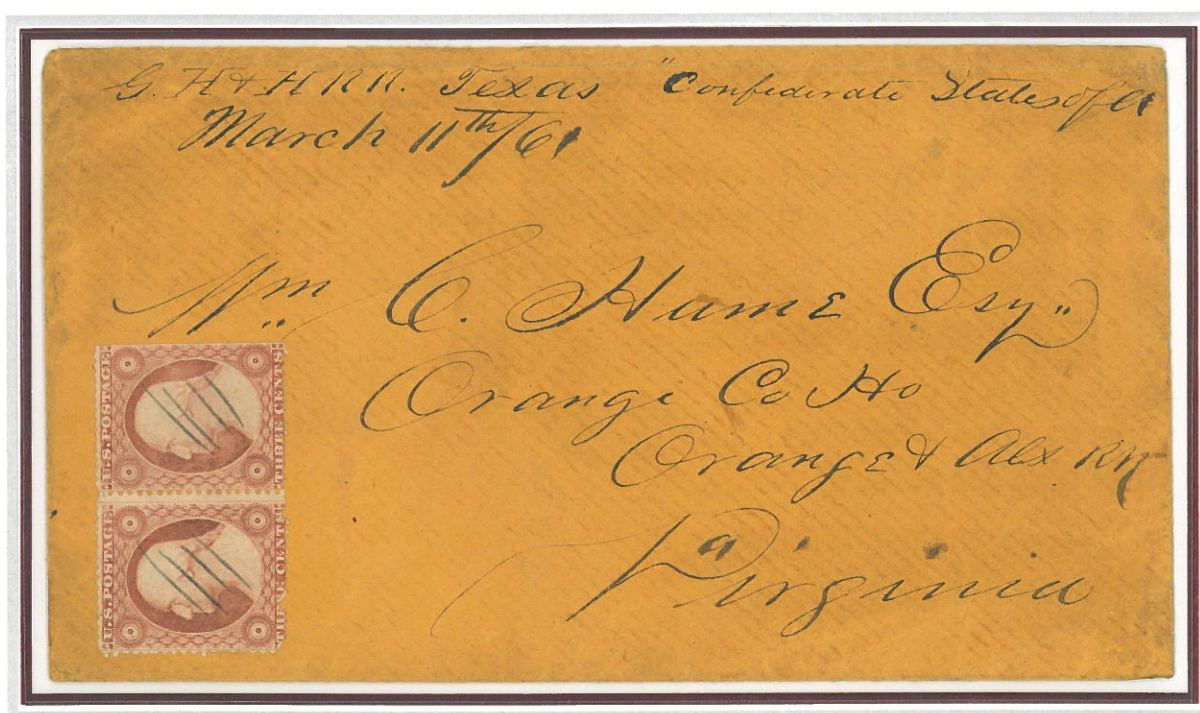 G. H & H RR. Texas "Confederate States of A
March 11th/61
Wm C. Hume Esq.
Orange Co Ho
Orange & Alx RR
Virginia
U.S. POSTAGE
THREE CENTS
U.S. POSTAGE
THREE CENTS